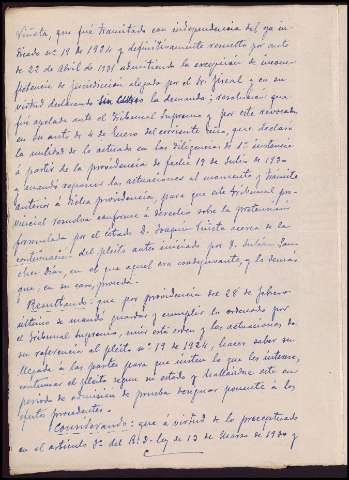 Viñeta, que fué tramitado con independencia del ya in-
dicado nº 19 de 1924 y definitivamente resuelto por auto
de 22 de Abril de 1931 admitiendo la excepción de incom-
petencia de jurisdicción alegada por el Sr. Fiscal y en su
virtud declarando sin curso la demanda; resolución que
fué apelada ante el Tribunal Supremo y por este revocada
en su auto de 4 de Enero del corriente año, que declara
la nulidad de lo actuado en las diligencias de 1ª instancia
á partir de la providencia de fecha 19 de Julio de 1930
y mandó reponer las actuaciones al momento y trámite
anterior á dicha providencia, para que este Tribunal pro-
vincial resuelva conforme á derecho sobre la pretensión
formulada por el citado D. Joaquín Viñeta acerca de la
continuación del pleito antes iniciado por D. Julián San-
chez Diaz, en el que aquel era coadyuvante, y lo demás
que, en su caso, proceda.
Resultando: que por providencia de 28 de Febrero
último se mandó guardar y cumplir lo ordenado por
el Tribunal Supremo, unir esta orden y las actuaciones de
su referencia al pleito nº 19 de 1924, hacer saber su
llegada á las partes para que insten lo que les interese,
continuar el pleito según su estado y hallándose este en
periodo de admisión de prueba designar ponente á los
efectos procedentes.
Considerando: que á virtud de lo preceptuado
en el artículo 3º del R. D-ley de 13 de Marzo de 1930 y